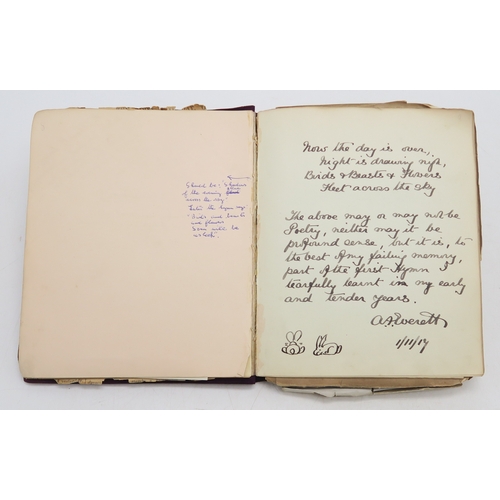 Should be: Shadows
of the evening
across the sky"
Later the hymn says
"Birds and beasts
and flowers
Soon will be
asleep.
Now the day is over,
Night is drawing nigh,
Birds & Beasts & Flowers
Fleet across the sky
The above may or may not be
Poetry, neither may it be
profound sense, but it is, to
the best of my failing memory,
part of the first Hymn I
tearfully learnt in my early
and tender years.
A. J. Everett
1/11/17